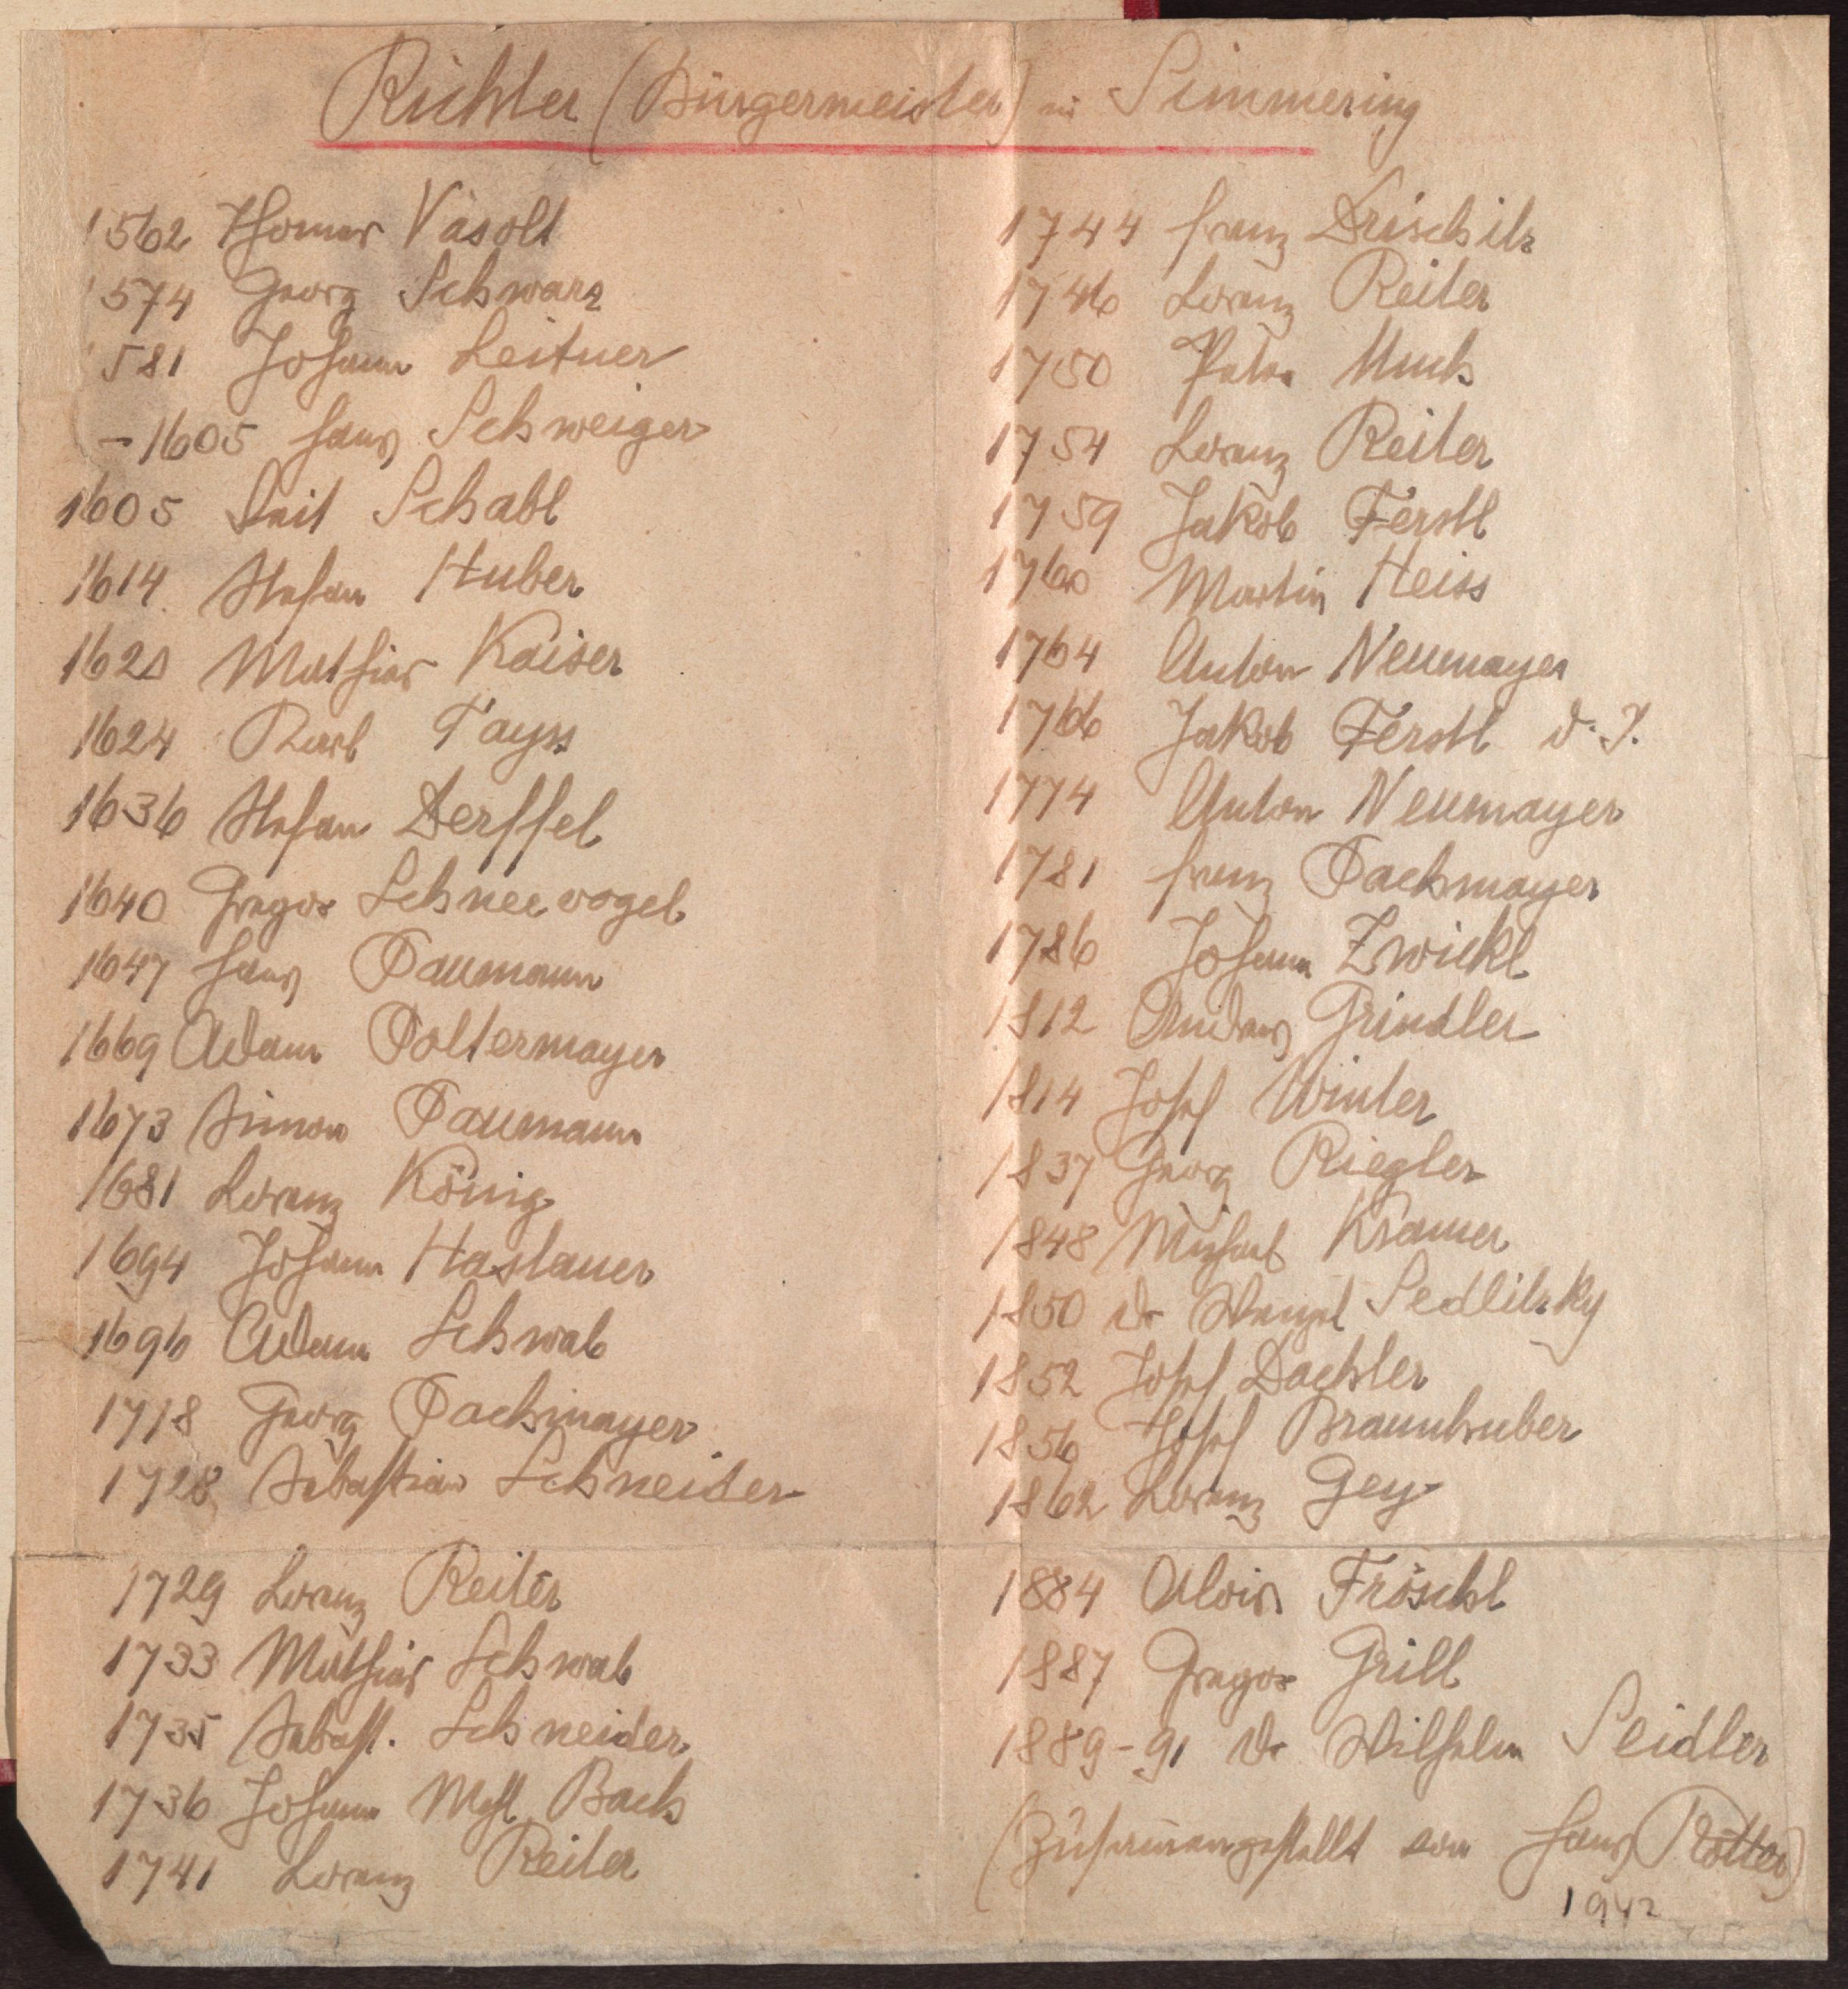 Richter (Bürgermeister) in Simmering
1562 Thomas Vasolt
1574 Georg Schwarz
1581 Johann Leitner
-1605 Hans Schweiger
1605 Veit Schabl
1614 Stefan Huber
1620 Mathias Kaiser
1624 Karl Tayss
1636 Stefan Derffel
1640 Gregor Schneevogel
1647 Hans Paumann
1669 Adam Poltermayer
1673 Simon Paumann
1681 Lorenz König
1694 Johann Haslauer
1696 Adam Schwab
1718 Georg Pachmayer
1728 Sebastian Schneider
1729 Lorenz Reiter
1733 Mathias Schwab
1735 Sebast. Schneider
1736 Johann Bach
1741 Lorenz Reiter
1744 Franz Drischitz
1746 Lorenz Reiter
1750 Peter Much
1754 Lorenz Reiter
1759 Jakob Ferstl
1760 Martin Heiss
1764 Anton Neumayer
1766 Jakob Ferstl d. J.
1774 Anton Neumayer
1781 Franz Pachmayer
1786 Johann Zwickl
1812 Andreas Grindler
1814 Josef Winter
1837 Georg Riegler
1848 Michael Kramer
1850 Dr Wenzel Sedlitzky
1852 Josef Dachler
1856 Josef Braunhuber
1862 Lorenz Gey
1884 Alois Fröschl
1887 Gregor Grill
1889-91 Dr Wilhelm Seidler
(Zusammengestellt von Hans Rotter)
1942